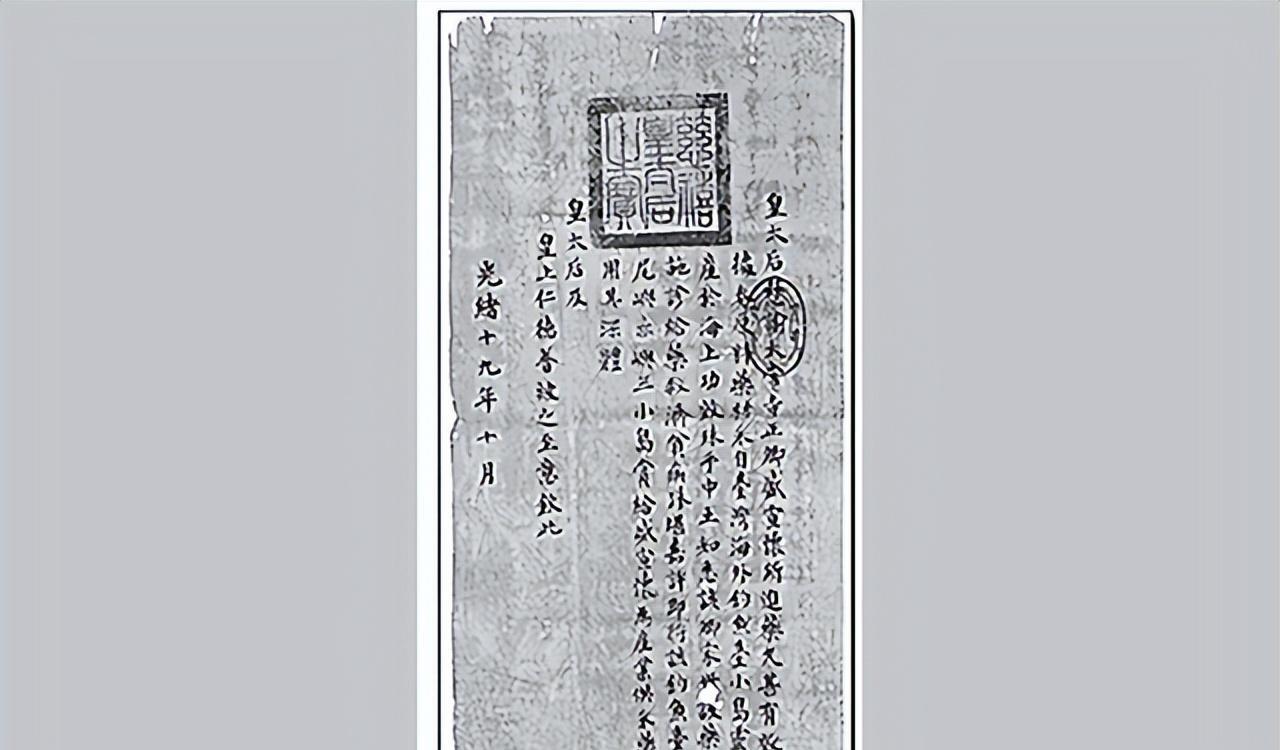 慈禧
皇太后
之寶
皇太后慈諭太常寺正卿盛宣懷所進藥丸甚有效
據奏原料藥材采自臺灣海外釣魚臺小島靈
產於海上功效殊乎中土知悉該卿家世設藥
施診給藥救濟貧病殊堪嘉許即將該釣魚臺
尾嶼赤嶼三小島賞給盛宣懷為產業供采藥
用其深體
皇太后及
皇上仁德普被之至意欽此
光緒十九年十月